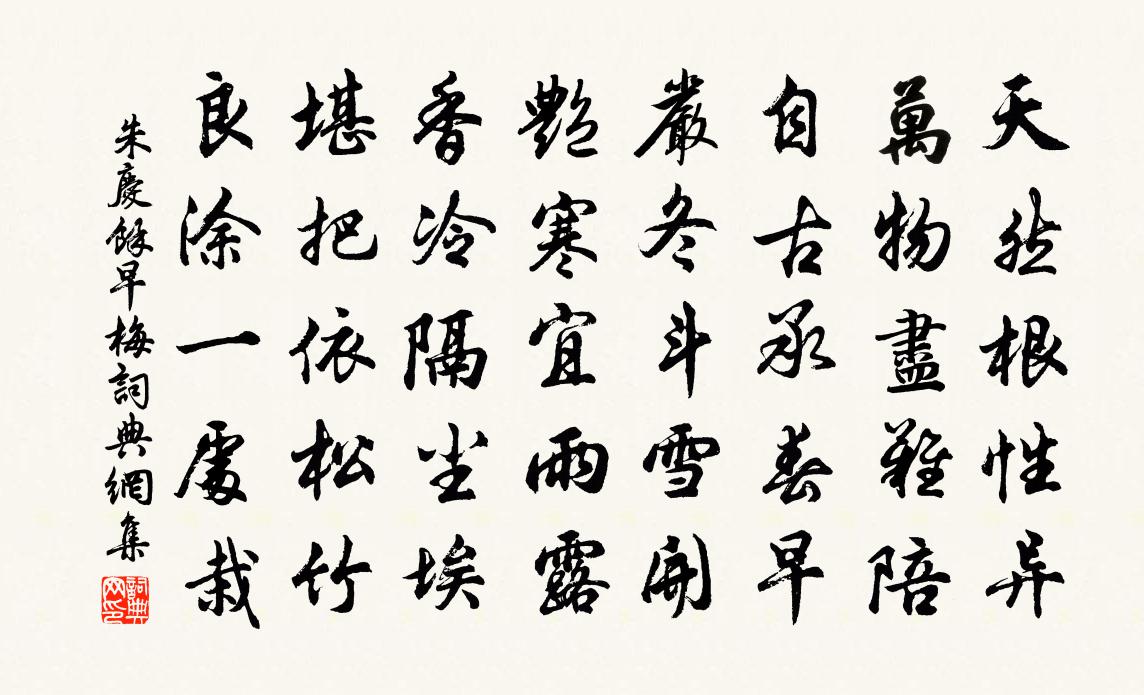 天然根性异
萬物盡難陪
自古承春早
嚴冬斗雪開
艷寒宜雨露
香冷隔尘埃
堪把依松竹
良涂一處栽
朱慶餘早梅詞典網集
詞典网印